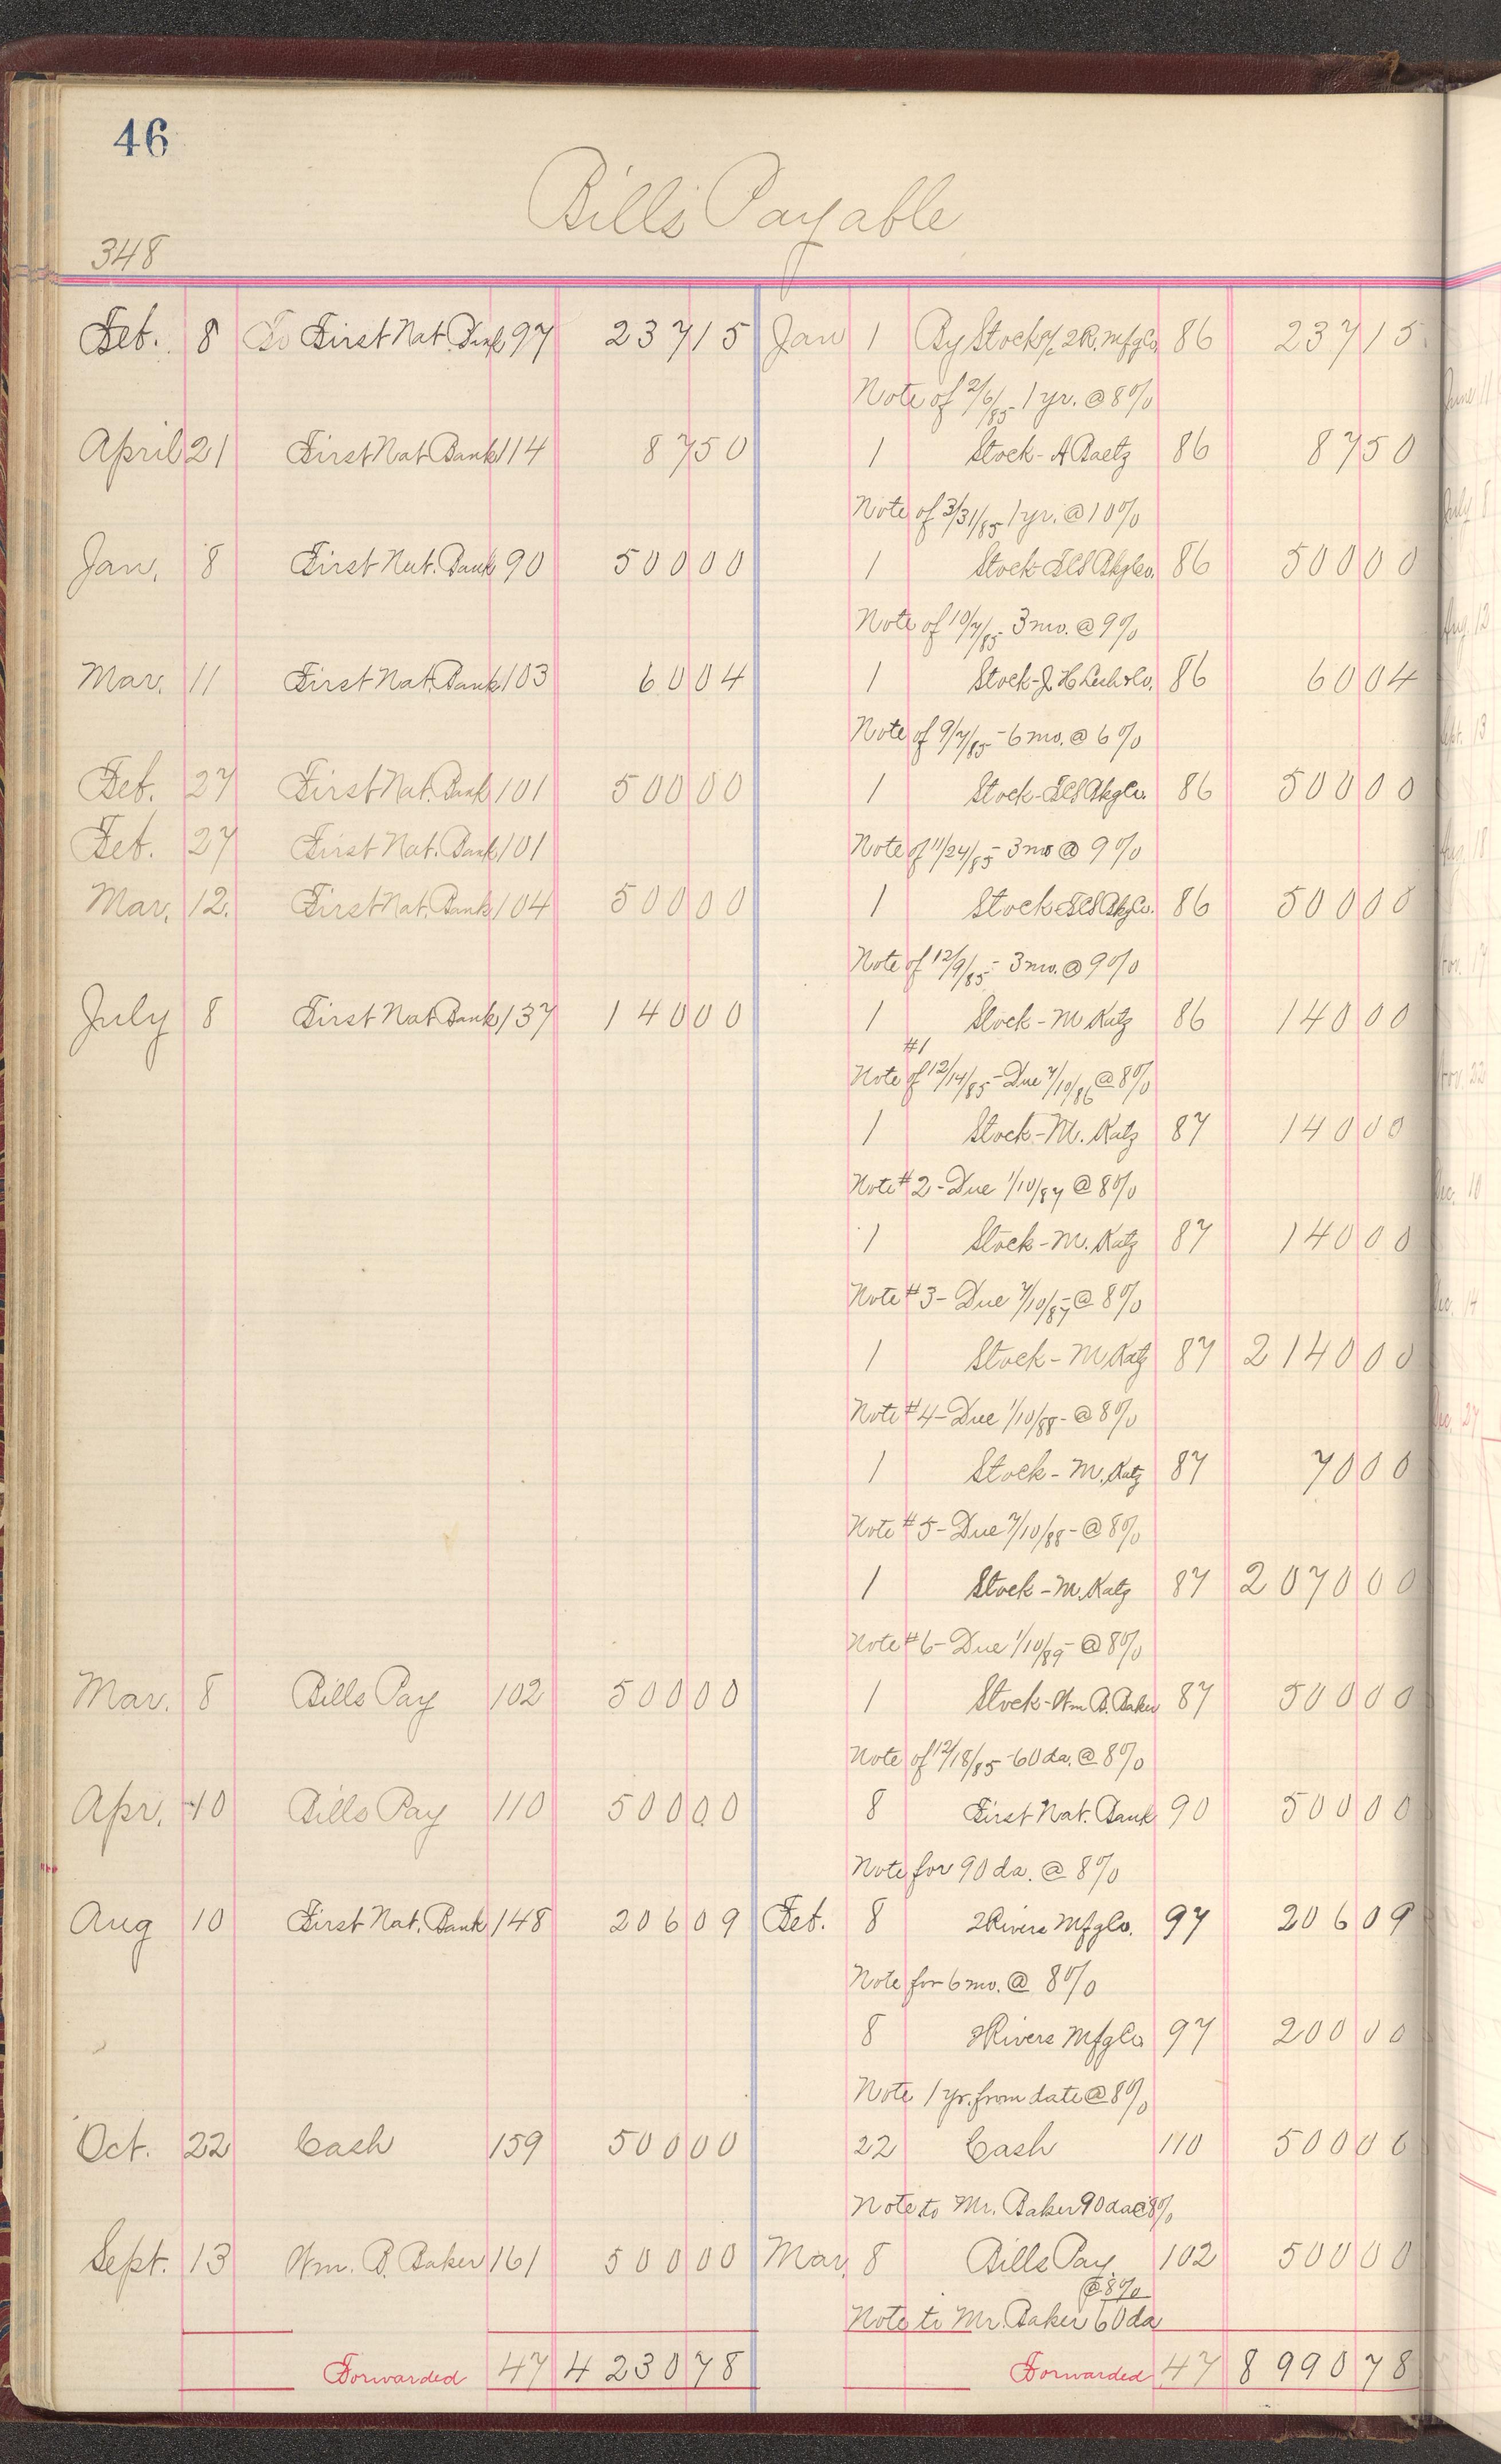 46
Bills Payable
348
Feb. 8 To First Nat. Bank 97 237 15 Jan 1 By Stock a/c 2R. Mfg Co. 86 237 15
Note of 2/6/85 - 1 yr. @ 8%
April 21 First Nat Bank 114 87 50 1 Stock - A Baetz 86 87 50
Note of 3/31/85 1 yr. @ 10%
Jan. 8 First Nat. Bank 90 500 00 1 Stock 86 500 00
Note of 10/7/85 - 3 mo. @ 9%
Mar. 11 First Nat. Bank 103 60 04 1 Stock - J H 86 60 04
Note of 9/7/85 - 6 mo. @ 6%
Feb. 27 First Nat. Bank 101 500 00 1 Stock - 86 500 00
Feb. 27 First Nat. Bank 101 Note of 11/24/85 - 3 mo @ 9%
Mar. 12. First Nat. Bank 104 500 00 1 Stock 86 500 00
Note of 12/9/85 - 3 mo. @ 9%
July 8 First Nat Bank 137 140 00 1 Stock - M Katz 86 140 00
#1
Note of 12/14/85 - Due 7/10/86 @ 8%
1 Stock - M. Katz 87 140 00
Note # 2 - Due 1/10/87 @ 8%
1 Stock - M. Katz 87 140 00
Note # 3 - Due 7/10/87 - @ 8%
1 Stock - M Katz 87 2140 00
Note # 4 - Due 1/10/88 - @ 8%
1 Stock - M. Katz 87 70 00
Note # 5 - Due 7/10/88 - @ 8%
1 Stock - M. Katz 87 2070 00
Note # 6 - Due 1/10/89 - @ 8%
Mar. 8 Bills Pay 102 500 00 1 Stock - Wm B. Baker 87 500 00
Note of 12/18/85 - 60 da. @ 8%
Apr. 10 Bills Pay 110 500 00 8 First Nat. Bank 90 500 00
Note for 90 da. @ 8%
Aug 10 First Nat. Bank 148 206 09 Feb. 8 2 Rivers Mfg Co. 97 206 09
Note for 6 mo. @ 8%
8 2 Rivers Mfg Co 97 200 00
Note 1 yr. from date @ 8%
Oct. 22 Cash 159 500 00 22 Cash 110 500 00
Note to Mr. Baker 90 da @ 8%
Sept. 13 Wm. B. Baker 161 500 00 Mar. 8 Bills Pay. 102 500 00
@ 8%
Note to Mr. Baker 60 da
Forwarded 47 4230 78 Forwarded 47 8990 78
June 11
July 8
Aug 12
Sept. 13
Nov. 17
Nov. 22
Dec. 10
Dec. 14
Dec. 27